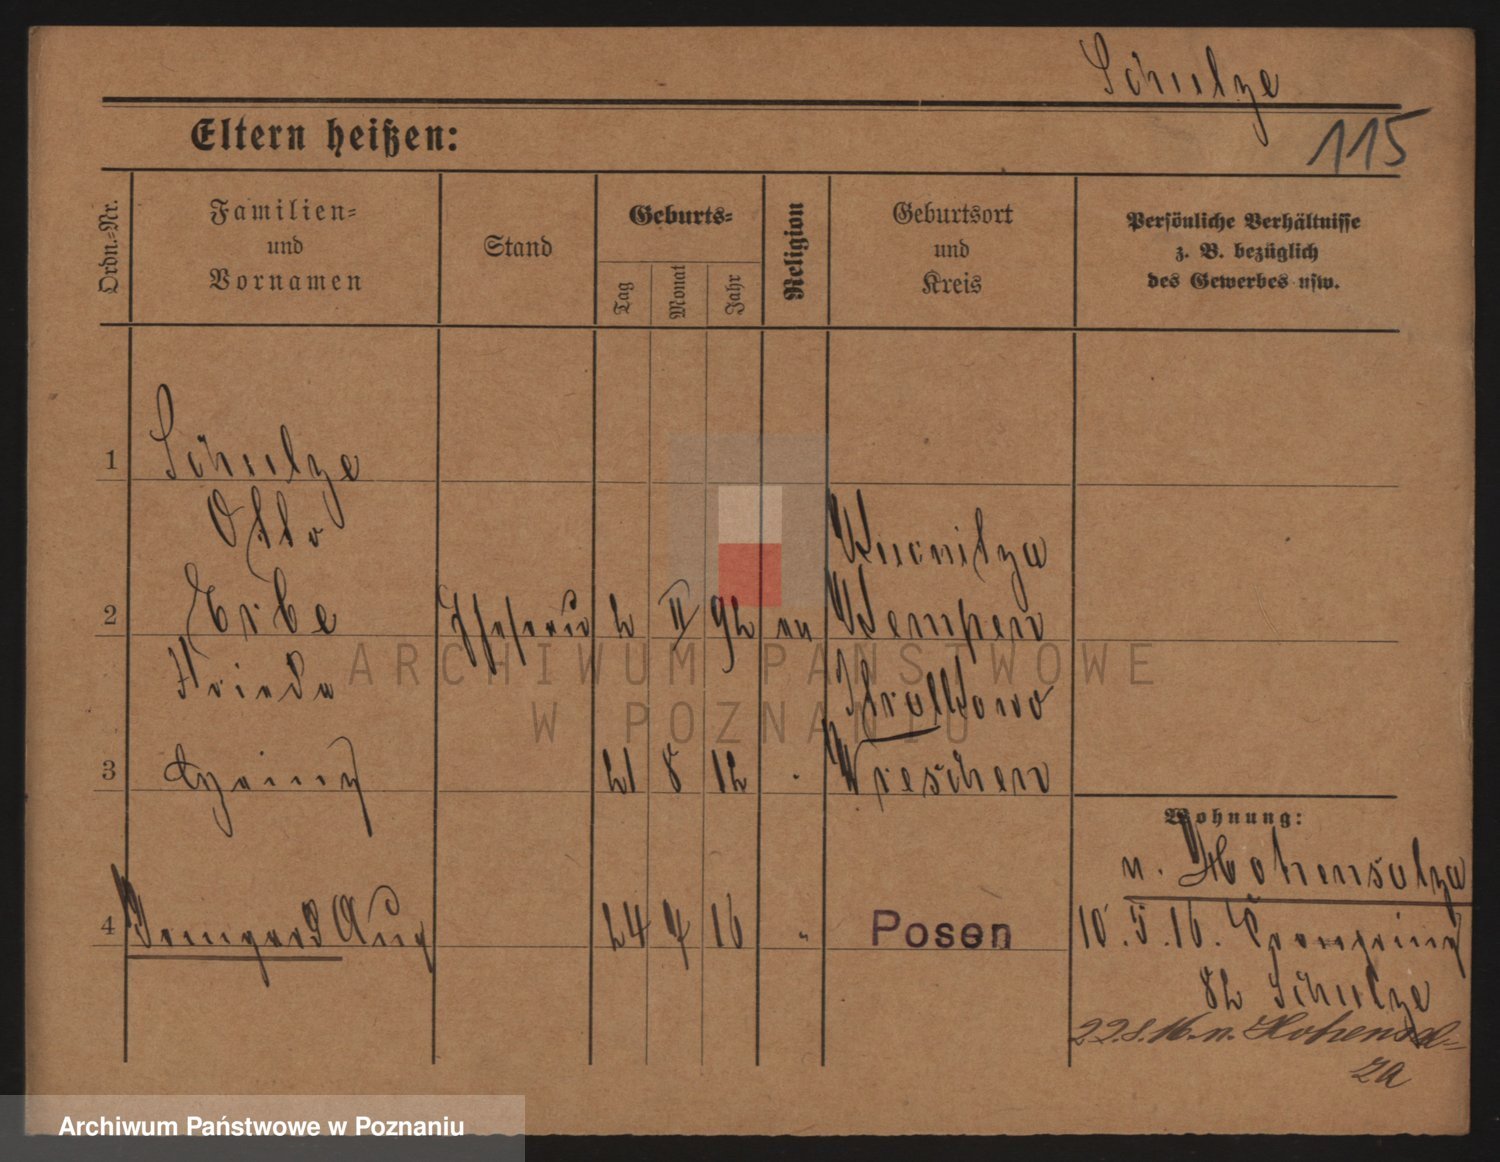 Schulze
115
Eltern heißen:
Ordn.-Nr.
Familien-
und
Vornamen
Stand
Geburts-
Tag
Monat
Jahr
Religion
Geburtsort
und
Kreis
Persönliche Verhältnisse
z. B. bezüglich
des Gewerbes usw.
1 Schulze
Otto
2 Erbe Ehefrau 2 II 92 ev Kempen
Frieda
3 21 8 12 Wreschen
Wohnung:
n. Hohensalza
4 Irmgard 24 4 16 " Posen 10.5.16.
82 Schulze
22.8.16. n. Hohensal-
za
ARCHIWUM PAŃSTWOWE
W POZNANIU
Archiwum Państwowe w Poznaniu